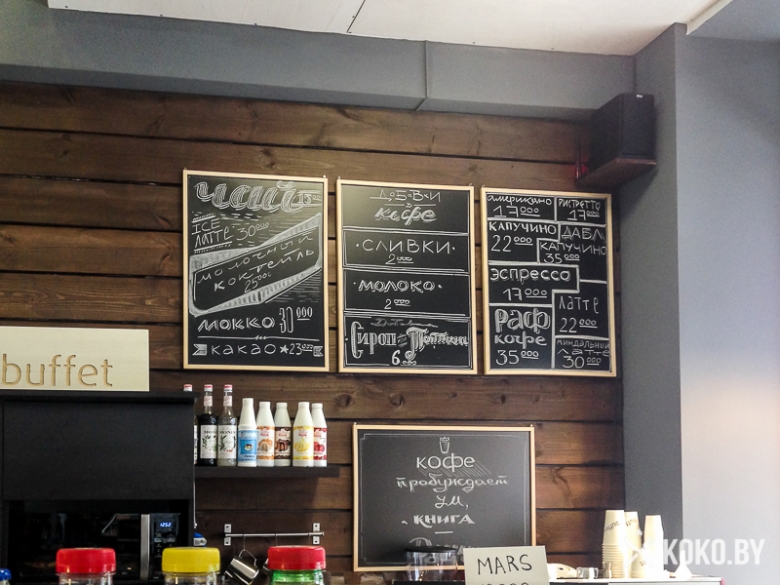 чай 15000
ICE
ЛАТТЕ 30000
молочный
коктейль
25000
мокко 30000
какао ★ 23000
кофе
·СЛИВКИ·
2000
·МОЛОКО·
2000
Сироп
6000
американо
17000
РИСТРЕТТО
17000
КАПУЧИНО
22000
ДАБЛ
КАПУЧИНО
35000
эспрессо
17000
ЛАТТЕ
22000
РАФ
кофе
35000
МИНДАЛЬНЫЙ
ЛАТТЕ
30000
buffet
кофе
пробуждает
ум,
книга
MARS
KOKO.BY